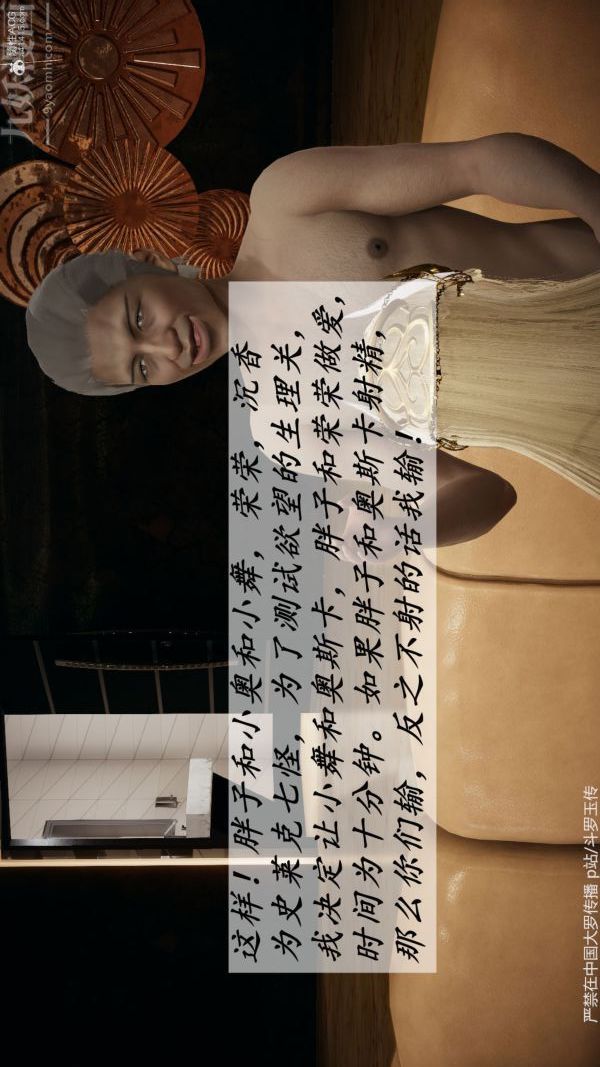 这样！胖子和小奥和小舞，荣荣，沉香
为史莱克七怪，为了测试欲望的生理关，
我决定让小舞和奥斯卡，胖子和荣荣做爱，
时间为十分钟。如果胖子和奥斯卡射精，
那么你们输，反之不射的话我输！
严禁在中国大罗传播 p站/斗罗玉传
9yaomh.com